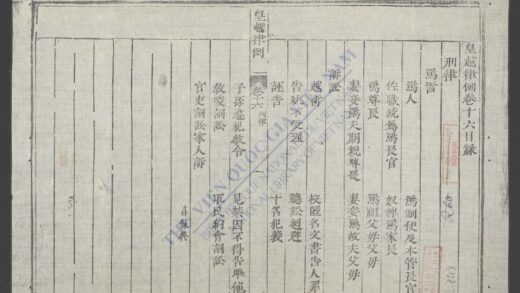 皇越律例卷十六目錄
刑律
罵詈
罵人 罵制使及本管長官
佐職統屬罵長官 奴婢罵家長
罵尊長 罵祖父母父母
妻妾罵夫期親尊長 妻妾罵故夫父母
訴訟
越訴 投匿名文書告人罪
告狀不受理 聽訟迴避
誣告 干名犯義
子孫違犯教令 見禁囚不得告舉他
教唆詞訟 軍民約會詞訟
官吏詞訟家人訴
皇越律例
卷十六 刑律
一
THƯ VIỆN QUỐC GIA VIỆT NAM
NATIONAL LIBRARY OF VIETNAM